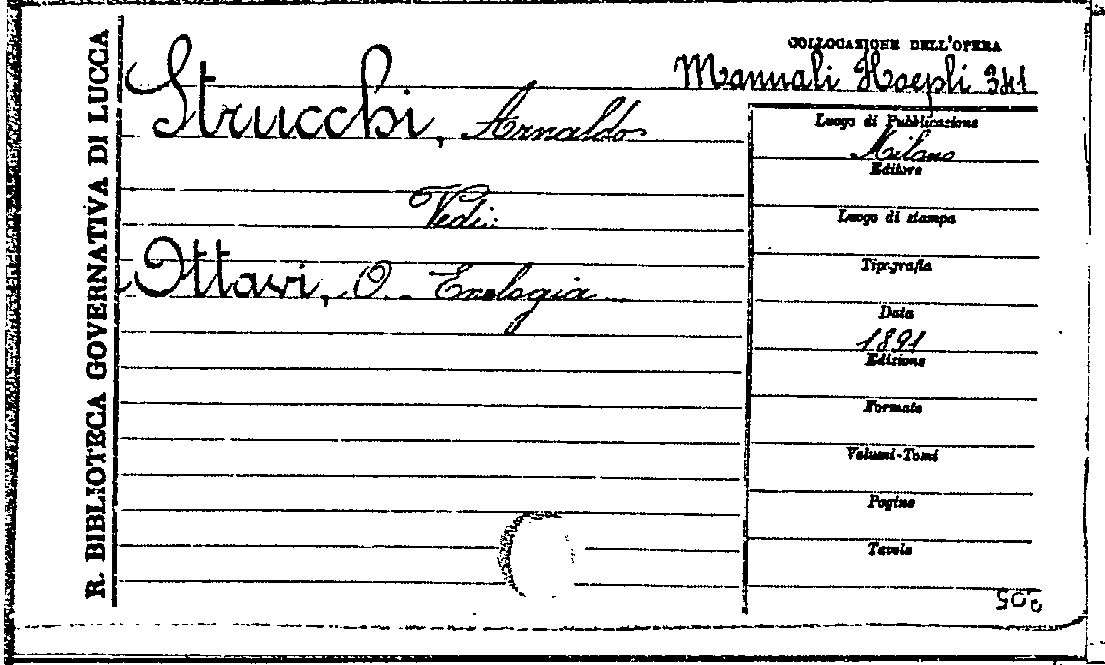 R. BIBLIOTECA GOVERNATIVA DI LUCCA
COLLOCAZIONE DELL'OPERA
Mannali Hoepli 341
Strucchi, Arnaldo
Vedi:
Ottavi, O. Enologia
Luogo di Pubblicazione
Milano
Editore
Luogo di stampa
Tipografia
Data
1891
Edizione
Formato
Volumi-Tomi
Pagine
Tavole